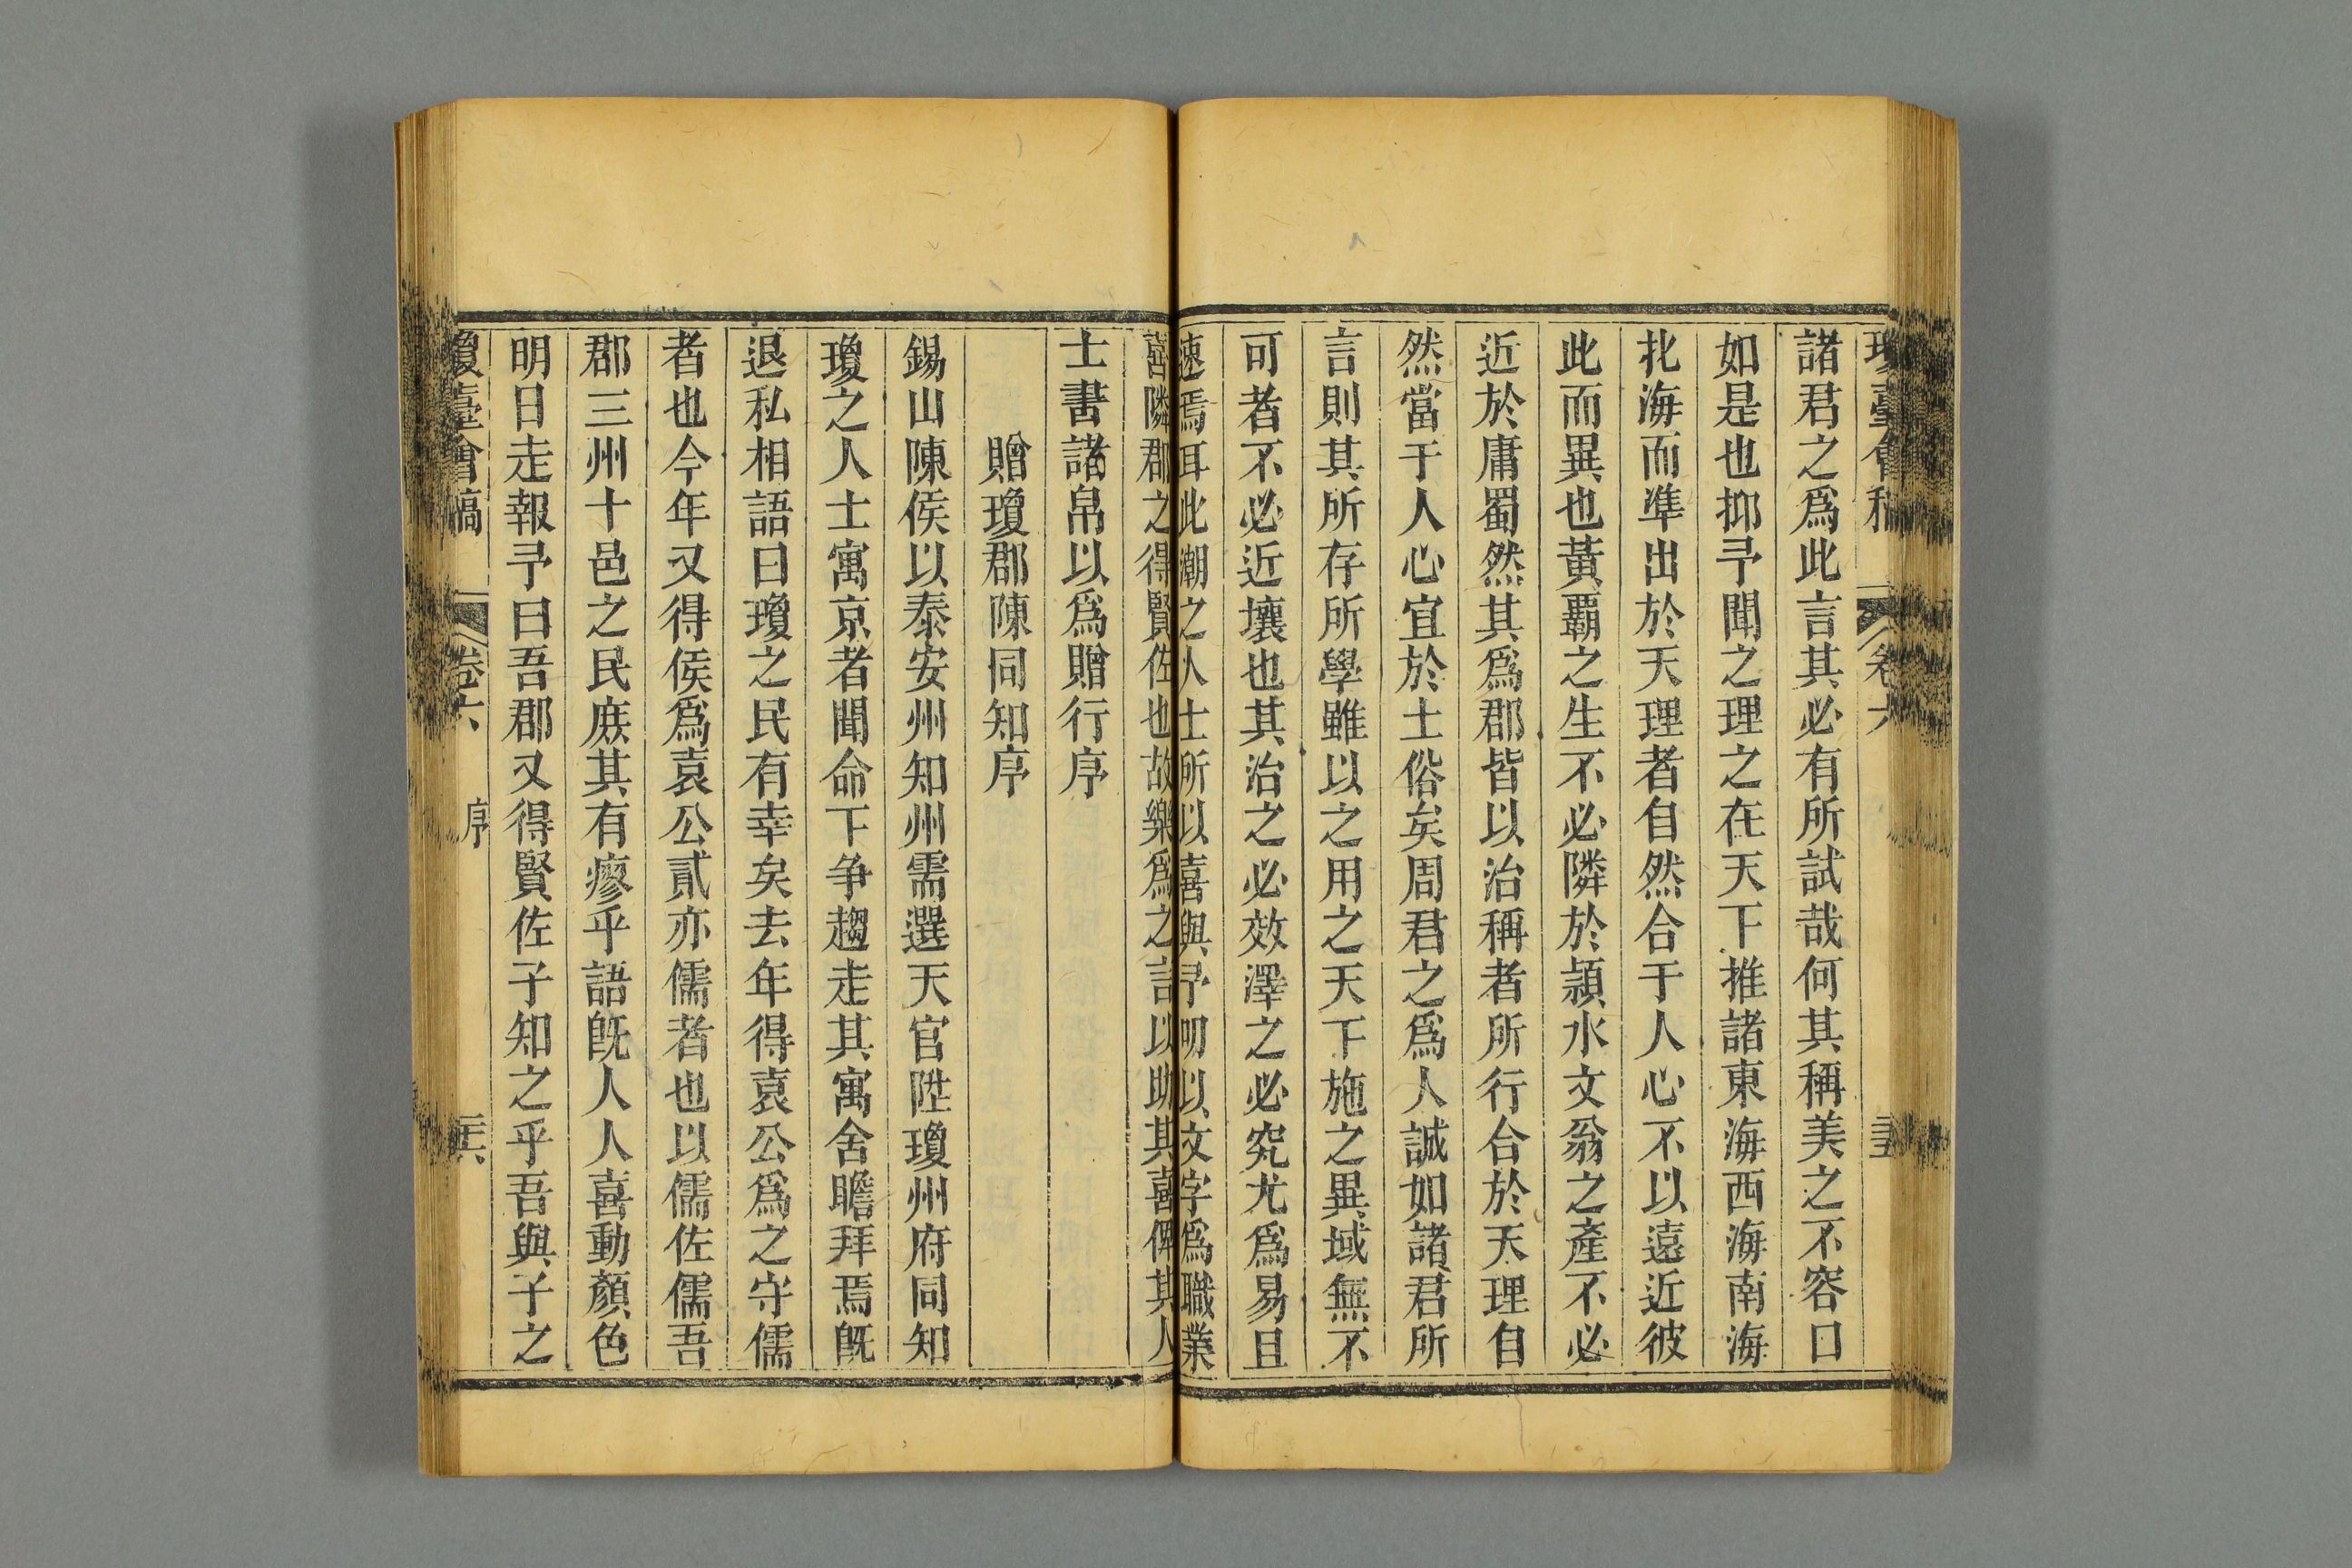 瓊臺會稿 卷六
諸君之爲此言其必有所試哉何其稱美之不容口
如是也抑予聞之理之在天下推諸東海西海南海
北海而準出於天理者自然合于人心不以遠近彼
此而異也黃霸之生不必隣於潁水文翁之產不必
近於庸蜀然其爲郡皆以治稱者所行合於天理自
然當于人心宜於土俗矣周君之爲人誠如諸君所
言則其所存所學雖以之用之天下施之異域無不
可者不必近壤也其治之必效澤之必究尤爲易且
速焉耳此潮之人士所以喜與予明以文字爲職業
喜隣郡之得賢佐也故樂爲之言以助其喜俾其人
士書諸帛以爲贈行序
贈瓊郡陳同知序
錫山陳侯以泰安州知州需選天官陞瓊州府同知
瓊之人士寓京者聞命下争趨走其寓舍瞻拜焉旣
退私相語曰瓊之民有幸矣去年得袁公爲之守儒
者也今年又得侯爲袁公貳亦儒者也以儒佐儒吾
郡三州十邑之民庶其有瘳乎語旣人人喜動顏色
明日走報予曰吾郡又得賢佐子知之乎吾與子之
瓊臺會稿 卷六 序 二十六